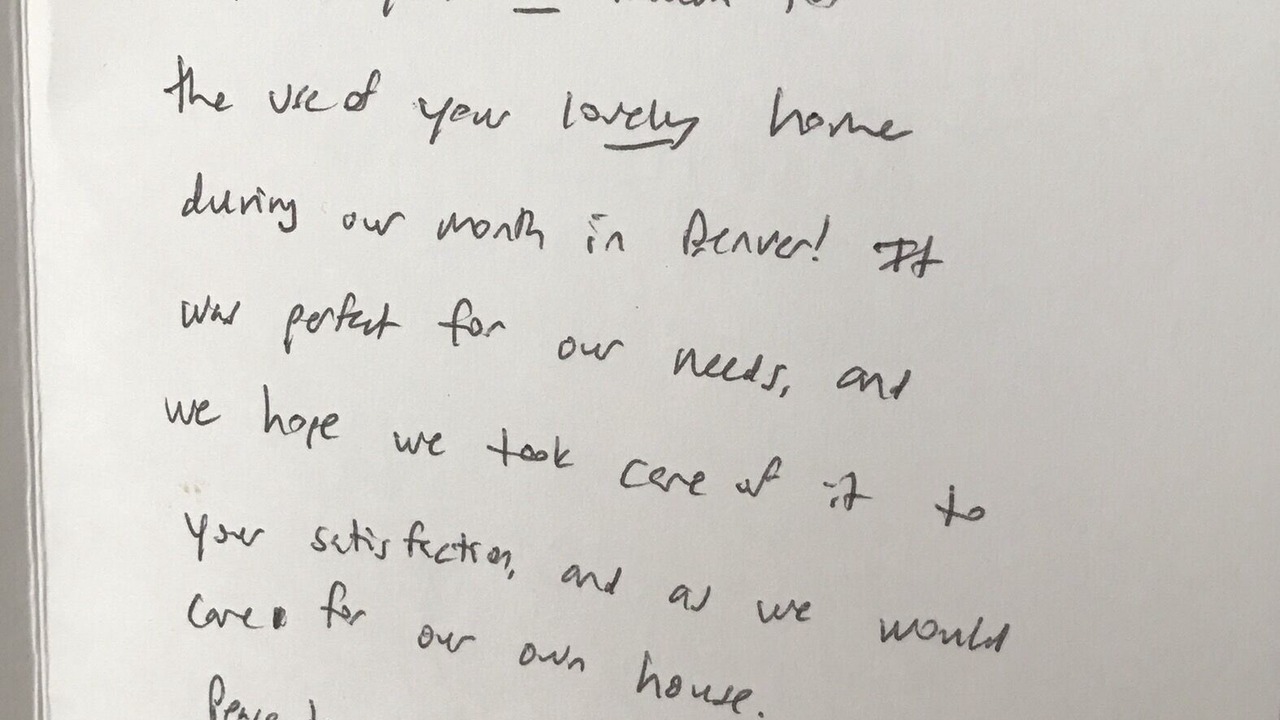 the use of your lovely home
during our month in Denver! It
was perfect for our needs, and
we hope we took care of it to
your satisfaction, and as we would
care for our own house.